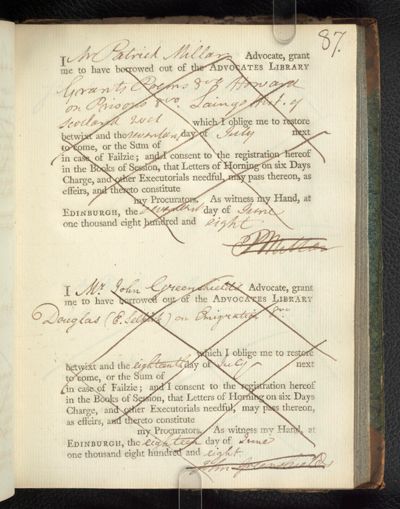 87.
I Mr Patrick Millar Advocate, grant
me to have borrowed out of the ADVOCATES LIBRARY
Grants Poems 8vo Howard
on Prisons 8vo. Laings Hist. of
Scotland 2 vol which I oblige me to restore
betwixt and the day of July next
to come, or the Sum of
in case of Failzie; and I consent to the registration hereof
in the Books of Session, that Letters of Horning on six Days
Charge, and other Executorials needful, may pass thereon, as
effeirs, and thereto constitute
my Procurators. As witness my Hand, at
EDINBURGH, the day of June
one thousand eight hundred and eight
P Millar
I Mr. John Greenshields Advocate, grant
me to have borrowed out of the ADVOCATES LIBRARY
Douglas (E. Selkirk) on Emigration 8vo
which I oblige me to restore
betwixt and the eighteenth day of July next
to come, or the Sum of
in case of Failzie; and I consent to the registration hereof
in the Books of Session, that Letters of Horning on six Days
Charge, and other Executorials needful, may pass thereon,
as effeirs, and thereto constitute
my Procurators. As witness my Hand, at
EDINBURGH, the eighteen day of June
one thousand eight hundred and eight
John Greenshields